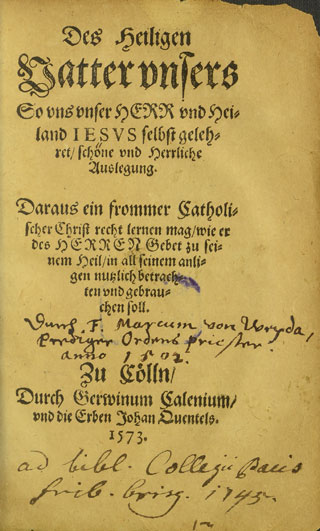 Des Heiligen
Vatter vnsers
So vns vnser HERR vnd Hei-
land IESVS selbst geleh-
ret/schöne vnd Herrliche
Auslegung.
Daraus ein frommer Catholi-
scher Christ recht lernen mag/wie er
des HERREN Gebet zu sei-
nem Heil/in all seinem anli-
gen nutzlich betrach-
ten vnd gebrau-
chen soll.
Durch F. Marcum von Weyda,
Prediger Ordens priester.
anno 1502.
Zu Cölln/
Durch Gerwinum Calenium/
vnd die Erben Johan Quentels.
1573.
ad bibl. Collegii Pacis
frib. brisg. 1745.